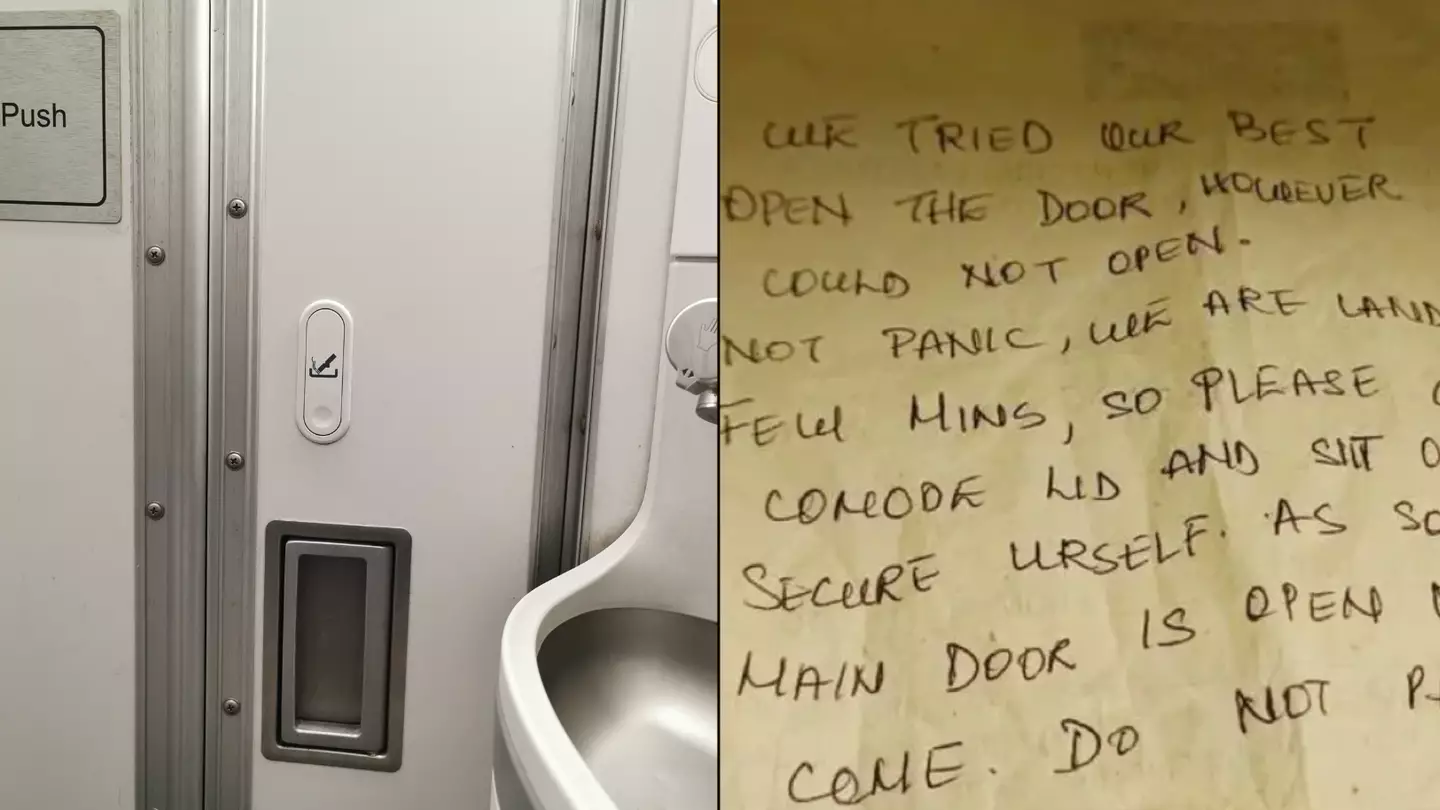 Push
WE TRIED OUR BEST
OPEN THE DOOR, HOWEVER
COULD NOT OPEN.
NOT PANIC, WE ARE
FEW MINS, SO PLEASE
COMODE LID AND SIT
SECURE URSELF. AS
MAIN DOOR IS OPEN
COME. DO NOT